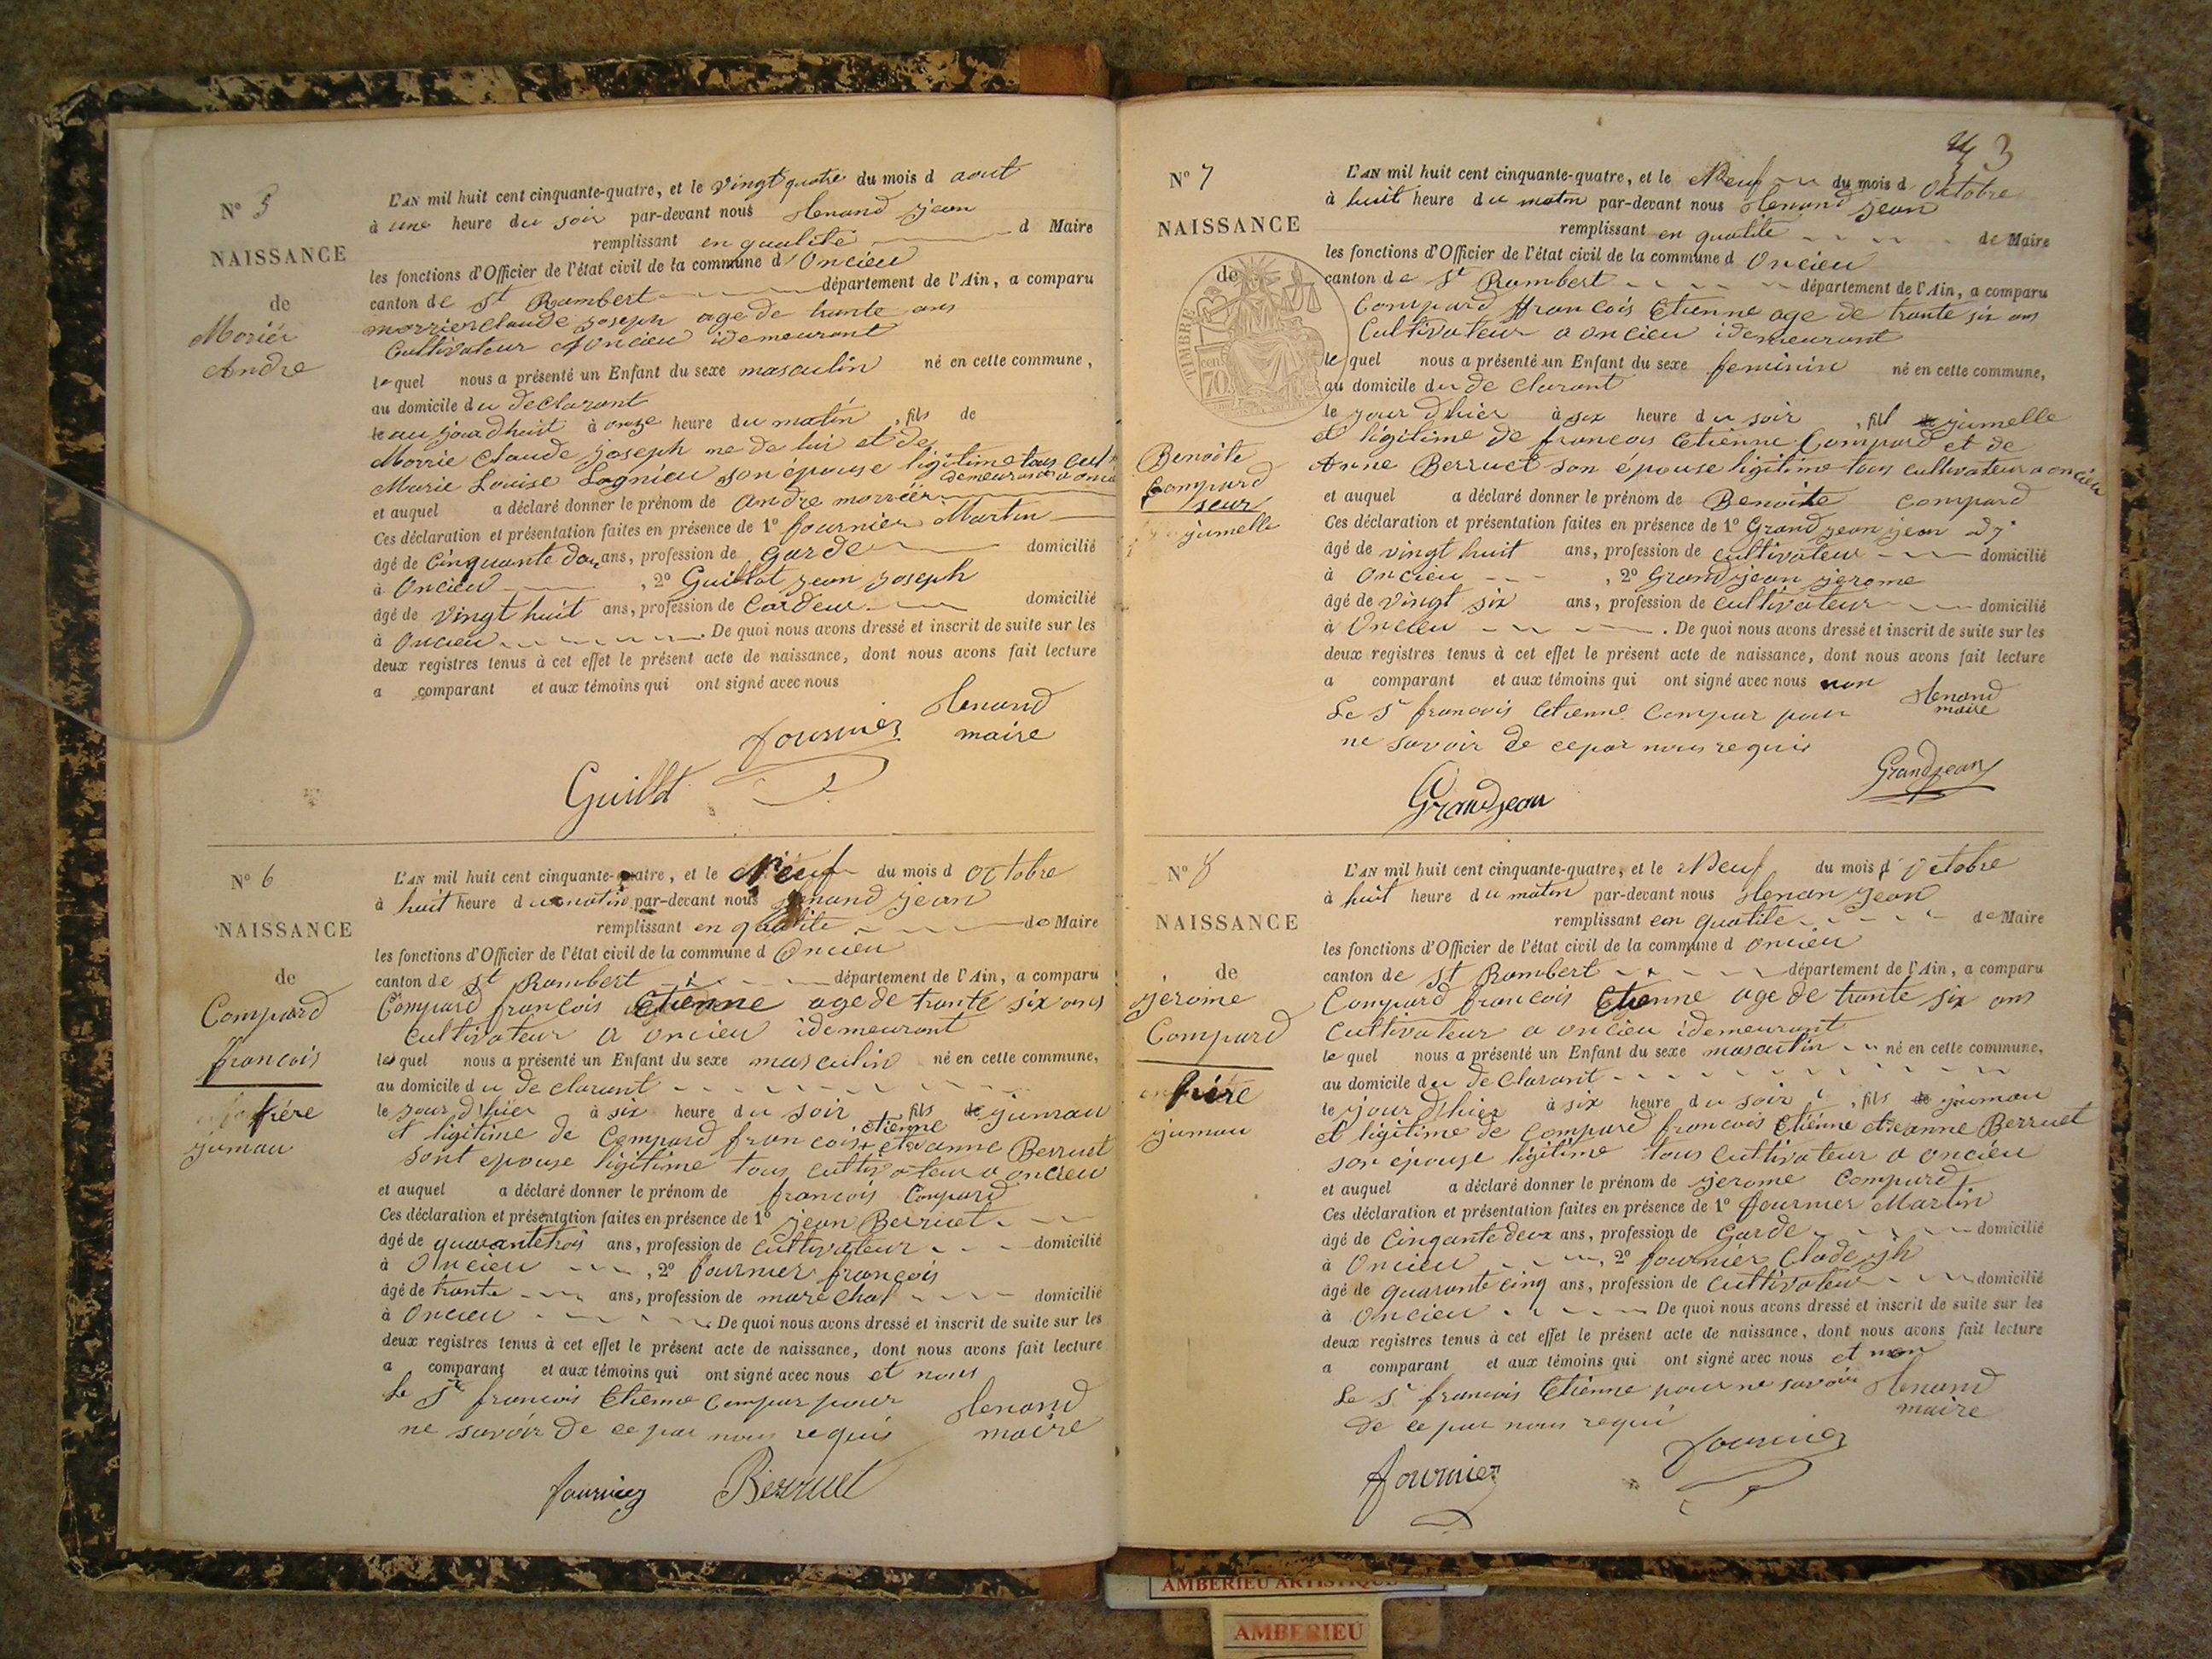 N° 5
NAISSANCE
de
Moriér
Andre
L'AN mil huit cent cinquante-quatre, et le vingt quatre du mois d aout
à une heure du soir par-devant nous Henand jean
remplissant en qualité d Maire
les fonctions d'Officier de l'état civil de la commune d'Oncieu
canton de St Rambert département de l'Ain, a comparu
morrier claude joseph age de trante ans
Cultivateur a Oncieu idemeurant
le quel nous a présenté un Enfant du sexe masculin né en cette commune,
au domicile du declarant
le aujourdhuit à onze heure du matin, fils de
Morrie Claude joseph ne de lui et de
Marie Louise Lagnieu son épouse ligitime tous cult
demeurant a oncieu
et auquel a déclaré donner le prénom de Andre morriér
Ces déclaration et présentation faites en présence de 1° fournier Martin
âgé de Cinquante doux ans, profession de Garde domicilié
à Oncieu, 2° Guillot jean joseph
âgé de vingt huit ans, profession de Cardeur domicilié
à Oncieu. De quoi nous avons dressé et inscrit de suite sur les
deux registres tenus à cet effet le présent acte de naissance, dont nous avons fait lecture
a comparant et aux témoins qui ont signé avec nous
Henand
maire
fournier
Guillot
N° 6
NAISSANCE
de
Compard
francois
frére
jumau
L'AN mil huit cent cinquante-quatre, et le Neuf du mois d octobre
à huit heure du matin par-devant nous Henand jean
remplissant en qualité de Maire
les fonctions d'Officier de l'état civil de la commune d Oncieu
canton de St Rambert département de l'Ain, a comparu
Compard francois Etienne age de trante six ans
cultivateur a oncieu idemeurant
le quel nous a présenté un Enfant du sexe masculin né en cette commune,
au domicile du declarant
le jour d'hier à six heure du soir fils de jumau
et ligitime de Compard francois etienne et de anne Berruet
sont epouse ligitime tous cultivateur a oncieu
et auquel a déclaré donner le prénom de francois Compard
Ces déclaration et présentation faites en présence de 1° jean Berruet
âgé de quarantetrois ans, profession de cultivateur domicilié
à Oncieu, 2° fournier francois
âgé de trante ans, profession de maréchal domicilié
à Oncieu. De quoi nous avons dressé et inscrit de suite sur les
deux registres tenus à cet effet le présent acte de naissance, dont nous avons fait lecture
a comparant et aux témoins qui ont signé avec nous et nous
Le Sr francois Etienne Compar pour
ne savoir de ce par nous requis
Henand
maire
fournier Berruet
3
N° 7
NAISSANCE
de
TIMBRE
70
Benoite
Compard
seur
jumelle
L'AN mil huit cent cinquante-quatre, et le Neuf du mois d Octobre
à huit heure du matin par-devant nous Henand jean
remplissant en qualité de Maire
les fonctions d'Officier de l'état civil de la commune d Oncieu
canton de St Rambert département de l'Ain, a comparu
Compard francois Etienne age de trante six ans
Cultivateur a oncieu idemeurant
le quel nous a présenté un Enfant du sexe feminin né en cette commune,
au domicile du de clarant
le jour dhier à six heure du soir, fill de jumelle
et ligitime de francois Etienne Compard et de
Anne Berruet son épouse ligitime tous cultivateur a oncieu
et auquel a déclaré donner le prénom de Benoite Compard
Ces déclaration et présentation faites en présence de 1° Grandjean jean
âgé de vingt huit ans, profession de cultivateur domicilié
à Oncieu, 2° Grandjean jerome
âgé de vingt six ans, profession de cultivateur domicilié
à Oncieu. De quoi nous avons dressé et inscrit de suite sur les
deux registres tenus à cet effet le présent acte de naissance, dont nous avons fait lecture
a comparant et aux témoins qui ont signé avec nous non
Le Sr francois Etienne Compar pour
ne savoir de ce par nous requis
Henand
maire
Grandjean
Grandjean
N° 8
NAISSANCE
de
jerome
Compard
frére
jumau
L'AN mil huit cent cinquante-quatre, et le Neuf du mois d'octobre
à huit heure du matin par-devant nous Henan jean
remplissant en qualite de Maire
les fonctions d'Officier de l'état civil de la commune d oncieu
canton de St Rambert département de l'Ain, a comparu
Compard francois Etienne age de trante six ans
cultivateur a oncieu idemeurant
le quel nous a présenté un Enfant du sexe masculin né en cette commune,
au domicile du declarant
le jour dhier à six heure du soir, fils de jumau
et ligitime de compard francois Etienne et de anne Berruet
son épouse ligitime tous cultivateur a oncieu
et auquel a déclaré donner le prénom de jerome Compard
Ces déclaration et présentation faites en présence de 1° fournier Martin
âgé de Cinqante deux ans, profession de Garde domicilié
à Oncieu, 2° fournier
âgé de quarante cinq ans, profession de cultivateur domicilié
à Oncieu De quoi nous avons dressé et inscrit de suite sur les
deux registres tenus à cet effet le présent acte de naissance, dont nous avons fait lecture
a comparant et aux témoins qui ont signé avec nous et non
Le Sr francois Etienne pour ne savoir
de ce par nous requi
Henand
maire
fournier
fournier
AMBERIEU ARTISTIQUE
AMBERIEU